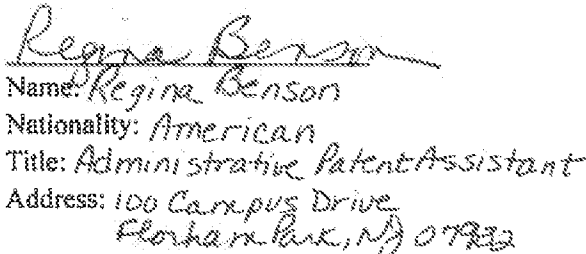 Regina Benson
Name: Regina Benson
Nationality: American
Title: Administrative Patent Assistant
Address: 100 Campus Drive
Florham Park, NJ 07932